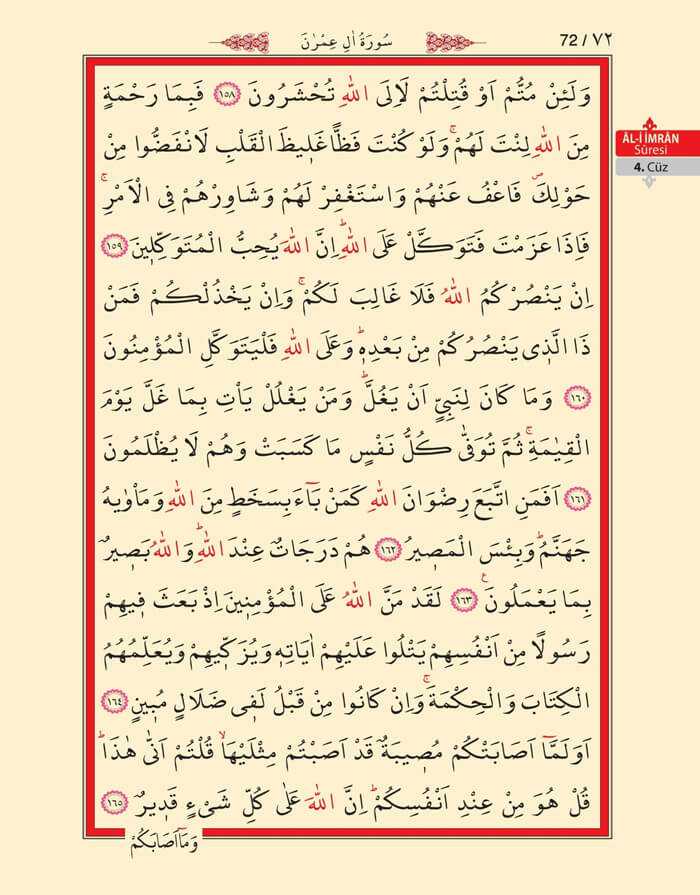 سُورَةُ اٰلِ عِمْرٰنَ
72 / ٧٢
ÂL-İ İMRÂN
Sûresi
4. Cüz
وَلَئِنْ مُتُّمْ اَوْ قُتِلْتُمْ لَاِلَى اللّٰهِ تُحْشَرُونَ ﴿١٥٨﴾ فَبِمَا رَحْمَةٍ
مِنَ اللّٰهِ لِنْتَ لَهُمْۚ وَلَوْ كُنْتَ فَظًّا غَل۪يظَ الْقَلْبِ لَانْفَضُّوا مِنْ
حَوْلِكَۖ فَاعْفُ عَنْهُمْ وَاسْتَغْفِرْ لَهُمْ وَشَاوِرْهُمْ فِي الْاَمْرِۚ
فَاِذَا عَزَمْتَ فَتَوَكَّلْ عَلَى اللّٰهِۜ اِنَّ اللّٰهَ يُحِبُّ الْمُتَوَكِّل۪ينَ ﴿١٥٩﴾
اِنْ يَنْصُرْكُمُ اللّٰهُ فَلَا غَالِبَ لَكُمْۚ وَاِنْ يَخْذُلْكُمْ فَمَنْ
ذَا الَّذ۪ي يَنْصُرُكُمْ مِنْ بَعْدِه۪ۜ وَعَلَى اللّٰهِ فَلْيَتَوَكَّلِ الْمُؤْمِنُونَ
﴿١٦٠﴾ وَمَا كَانَ لِنَبِيٍّ اَنْ يَغُلَّۜ وَمَنْ يَغْلُلْ يَأْتِ بِمَا غَلَّ يَوْمَ
الْقِيٰمَةِۚ ثُمَّ تُوَفّٰى كُلُّ نَفْسٍ مَا كَسَبَتْ وَهُمْ لَا يُظْلَمُونَ
﴿١٦١﴾ اَفَمَنِ اتَّبَعَ رِضْوَانَ اللّٰهِ كَمَنْ بَٓاءَ بِسَخَطٍ مِنَ اللّٰهِ وَمَأْوٰيهُ
جَهَنَّمُۜ وَبِئْسَ الْمَص۪يرُ ﴿١٦٢﴾ هُمْ دَرَجَاتٌ عِنْدَ اللّٰهِۜ وَاللّٰهُ بَص۪يرٌ
بِمَا يَعْمَلُونَ ﴿١٦٣﴾ لَقَدْ مَنَّ اللّٰهُ عَلَى الْمُؤْمِن۪ينَ اِذْ بَعَثَ ف۪يهِمْ
رَسُولًا مِنْ اَنْفُسِهِمْ يَتْلُوا عَلَيْهِمْ اٰيَاتِه۪ وَيُزَكّ۪يهِمْ وَيُعَلِّمُهُمُ
الْكِتَابَ وَالْحِكْمَةَۚ وَاِنْ كَانُوا مِنْ قَبْلُ لَف۪ي ضَلَالٍ مُب۪ينٍ ﴿١٦٤﴾
اَوَلَمَّٓا اَصَابَتْكُمْ مُص۪يبَةٌ قَدْ اَصَبْتُمْ مِثْلَيْهَاۙ قُلْتُمْ اَنّٰى هٰذَاۜ
قُلْ هُوَ مِنْ عِنْدِ اَنْفُسِكُمْۜ اِنَّ اللّٰهَ عَلٰى كُلِّ شَيْءٍ قَد۪يرٌ ﴿١٦٥﴾
وَمَٓا اَصَابَكُمْ